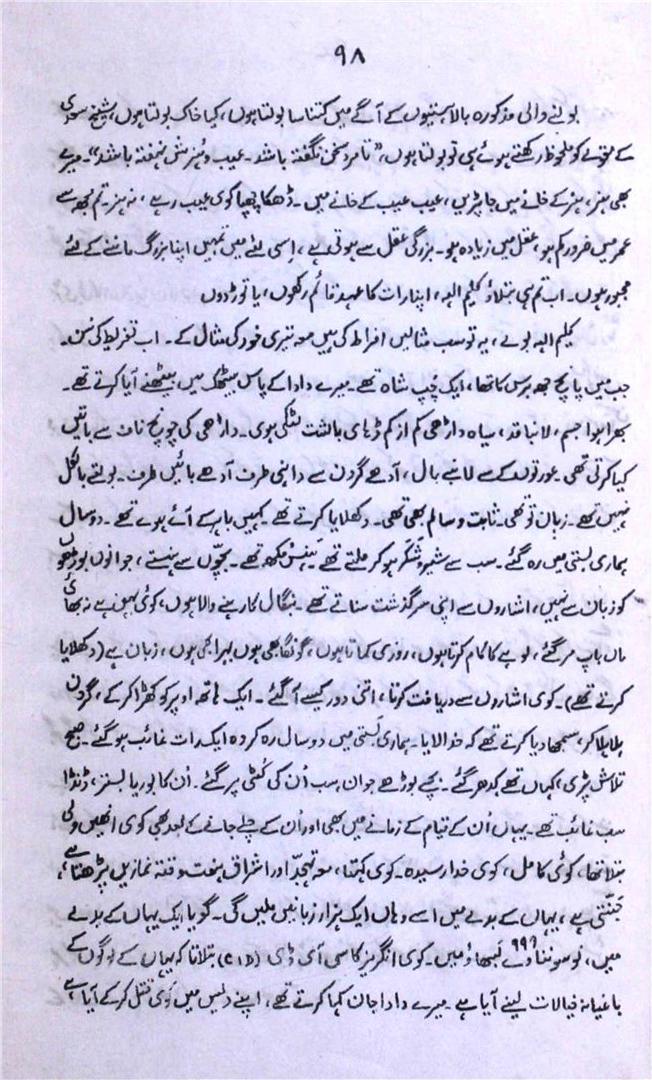 ۹۸
بولنے والی مذکورہ بالا ہستیوں کے آگے میں کتنا سا بولتا ہوں، کیا خاک بولتا ہوں، شیخ سعدی
کے مقولے کو ملحوظ رکھتے ہوئے ہی تو بولتا ہوں، "تا مرد سخن نگفتہ باشد۔ عیب و ہنرش نہفتہ باشد"۔ میرے
بھی ہنر، ہنر کے خانے میں جا پڑیں، عیب عیب کے خانے میں۔ ڈھکا چھپا کوی عیب رہے، نہ ہنر۔ تم مجھ سے
عمر میں ضرور کم ہو، عقل میں زیادہ ہو۔ بزرگی عقل سے ہوتی ہے، اِسی لئے میں تمہیں اپنا بزرگ ماننے کے لئے
مجبور ہوں۔ اب تم ہی بتلاؤ کلیم الہہ، اپنا رات کا عہد قائم رکھوں، یا توڑ دوں
کلیم الہہ بولے، یہ تو سب مثالیں افراط کی ہیں معہ تیری خود کی مثال کے۔ اب تفریط کی سُن۔
جب میں پانچ چھ برس کا تھا، ایک چُپ شاہ تھے۔ میرے دادا کے پاس بیٹھک میں بیٹھنے آیا کرتے تھے۔
بھرا ہوا جسم، لانبا قد، سیاہ داڑھی کم از کم ڈہای بالشت لٹکی ہوی۔ داڑھی کی چونچ ناف سے باتیں
کیا کرتی تھی۔ عورتوں کے سے لانبے بال، آدھے گردن سے داہنی طرف آدھے بائیں طرف۔ بولتے بالکل
نہیں تھے۔ زبان تو تھی۔ ثابت و سالم بھی تھی۔ دکھلایا کرتے تھے۔ کہیں باہر کے آئے ہوے تھے۔ دو سال
ہماری بستی میں رہ گئے۔ سب سے شیر و شکر ہو کر ملتے تھے۔ ہنس مکھ تھے۔ بچّوں سے ہنستے، جوانوں بوڑھوں
کو زبان سے نہیں، اشاروں سے اپنی سرگذشت سناتے تھے۔ بنگال کا رہنے والا ہوں، کوئی بہن ہے نہ بھائی
ماں باپ مر گئے، لوہے کا کام کرتا ہوں، روزی کماتا ہوں، گونگا بھی ہوں بہرا بھی ہوں، زبان ہے (دکھلایا
کرتے تھے)۔ کوی اشاروں سے دریافت کرتا، اتنی دور کیسے آگئے۔ ایک ہاتھ اوپر کو کھڑا کر کے، گردن
ہلا ہلا کر، سمجھا دیا کرتے تھے کہ خدا لایا۔ ہماری بستی میں دو سال رہ کر وہ ایک رات غائب ہو گئے۔ صبح
تلاش پڑی، کہاں تھے کدھر گئے۔ بچے بوڑھے جوان سب اُن کی کُٹی پر گئے۔ اُن کا بوریا بستر، ڈنڈا
سب غائب تھے۔ یہاں اُن کے قیام کے زمانے میں بھی اور اُن کے چلے جانے کے بعد بھی کوی انھیں ولی
بتلاتا تھا، کوئی کامل، کوی خدا رسیدہ۔ کوی کہتا، معہ تہجّد اور اشراق ہفت وقتہ نمازیں پڑھتا ہے،
جَنّتی ہے، یہاں کے بدلے میں اسے وہاں ایک ہزار زبانیں ملیں گی۔ گویا ایک یہاں کے بدلے
میں، نو سو ننانوے ۹۹۹ لبھاؤ میں۔ کوی انگریز کا سی آئی ڈی (CID) بتلاتا کہ یہاں کے لوگوں کے
باغیانہ خیالات لینے آیا ہے۔ میرے دادا جان کہا کرتے تھے، اپنے دیس میں کوی قتل کر کے آیا ہے